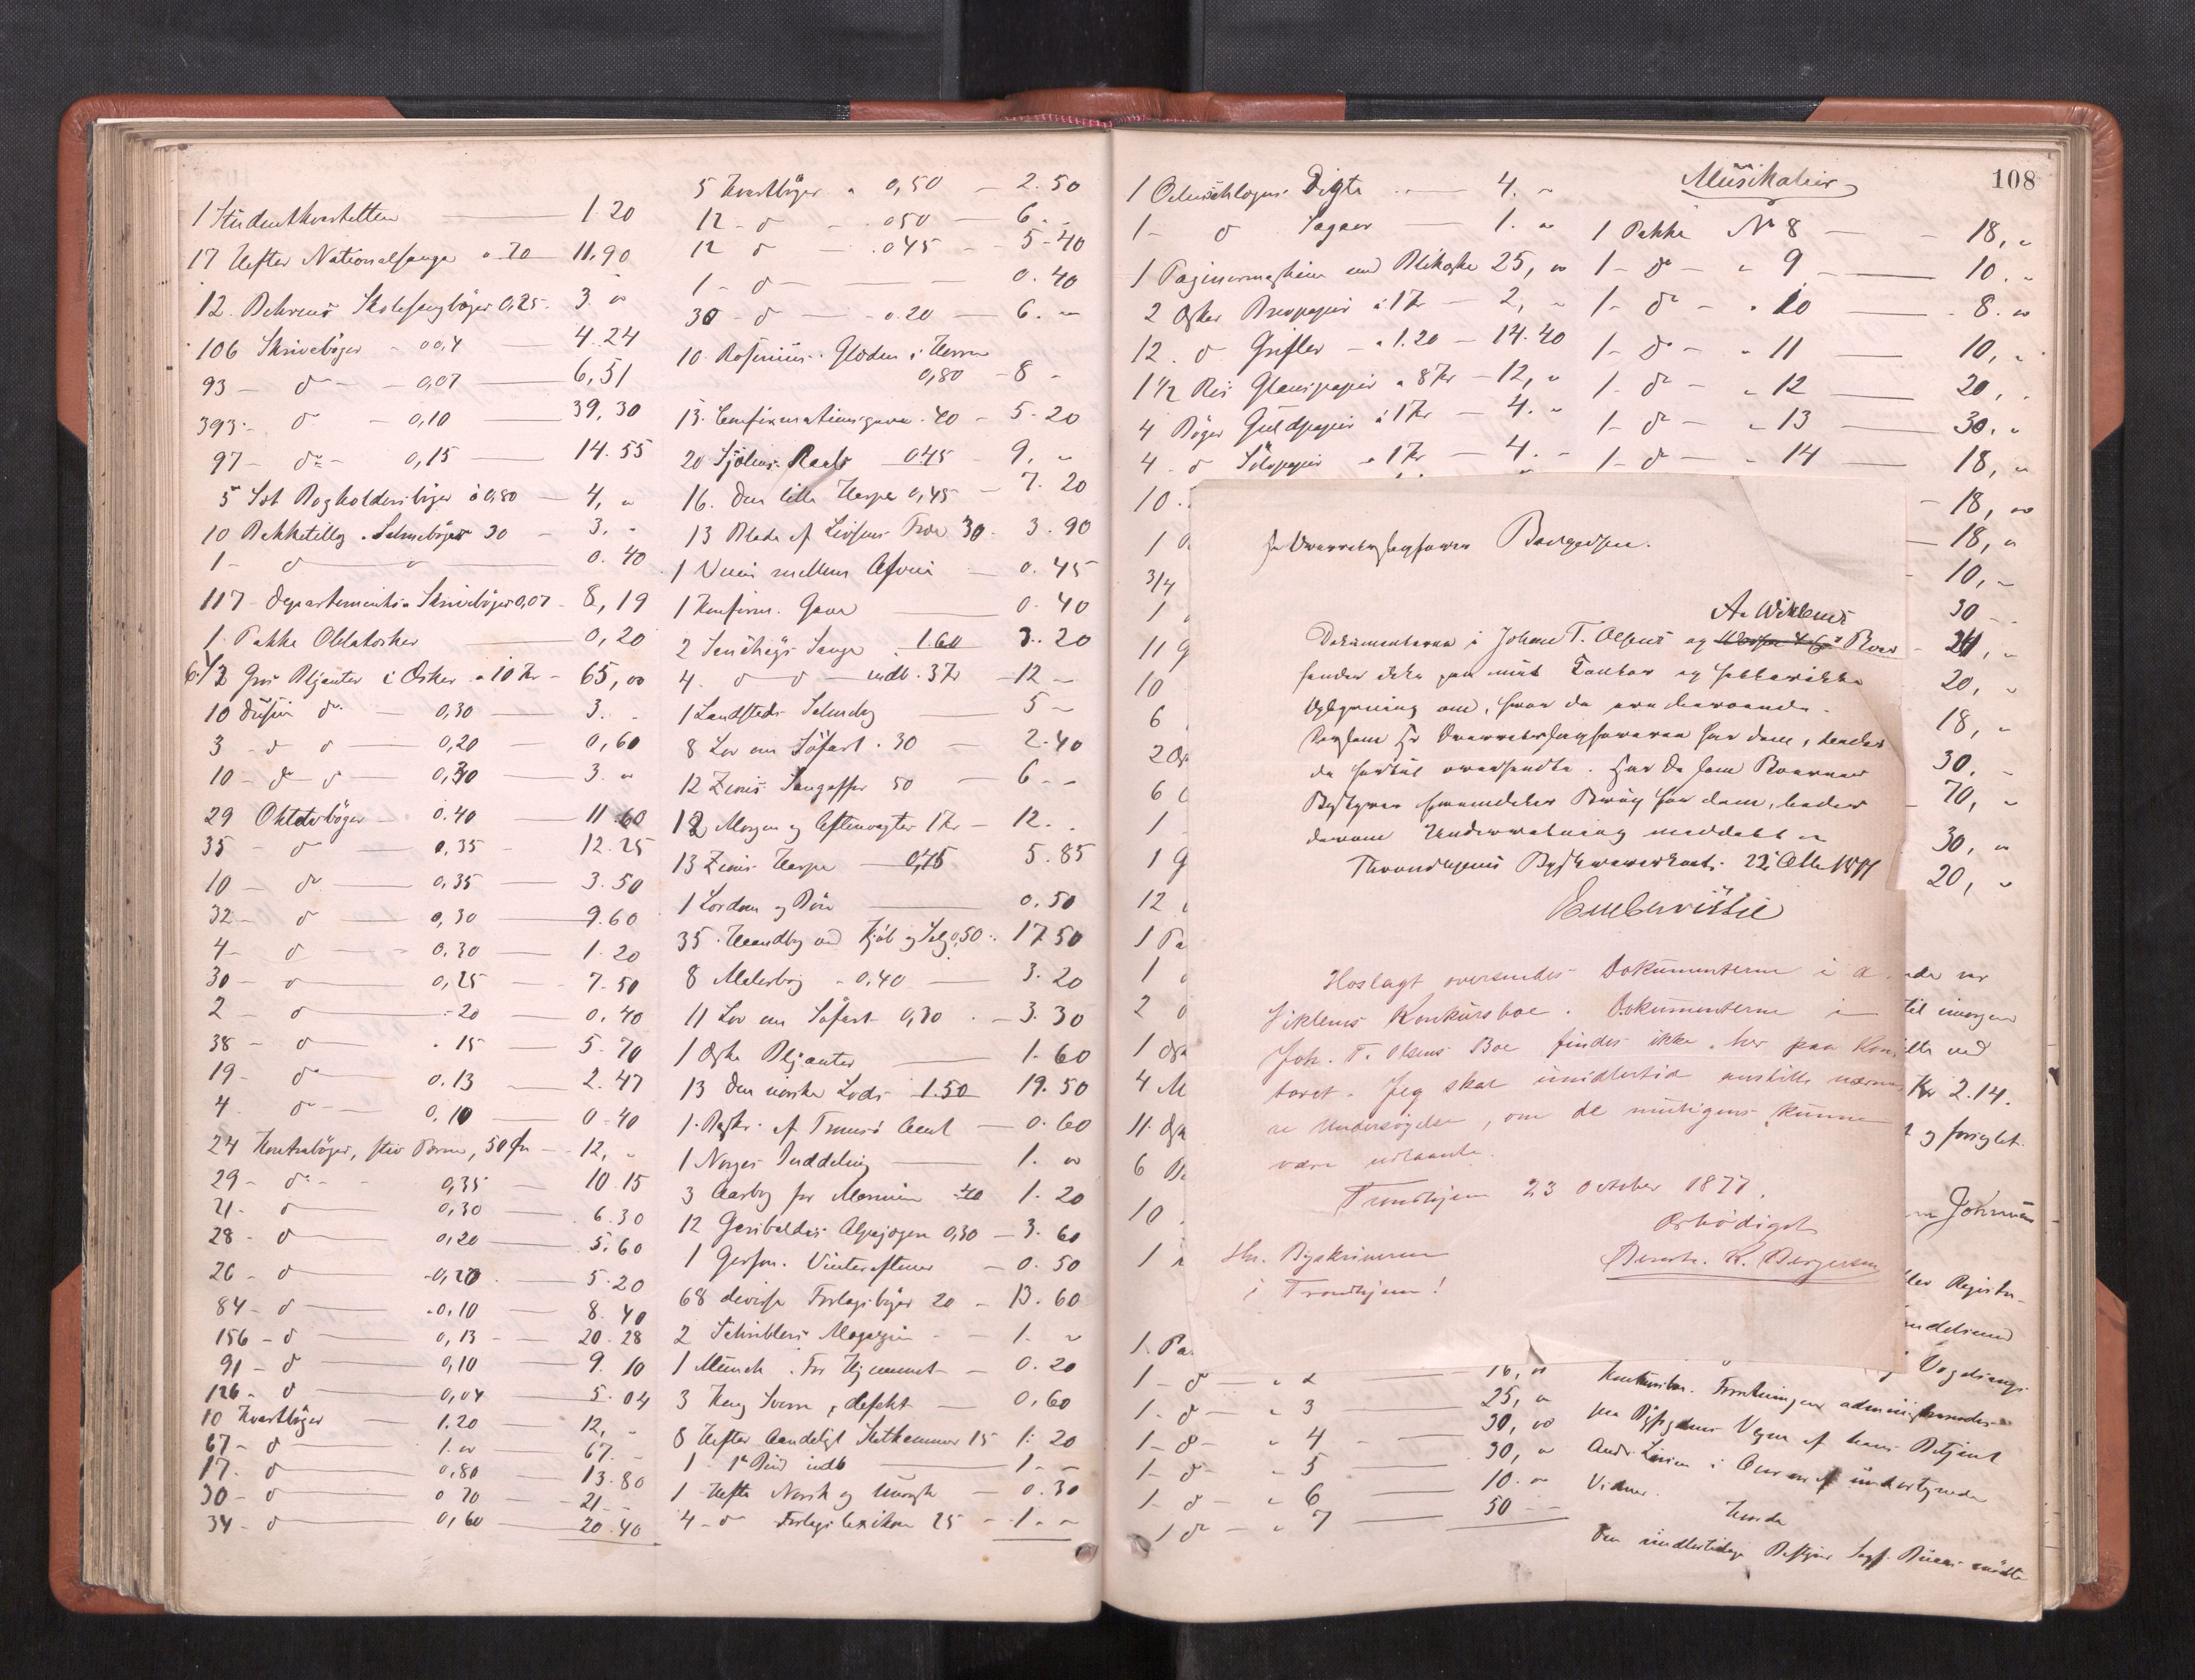 1 Studentkvartetten — 1.20
17 Hefter Nationalsange a 70 11,90
12 Behrens Skolesangbøger 0,25 3. "
106 Skrivebøger - 004 — 4.24
93 - d - 0,07 — 6,51
393 - d - 0,10 — 39,30
97 - do - 0,15 — 14.55
5 Set Bogholderibøger a 0,80 — 4, "
10 Pakketillæg Salmebøger 30 - 3. "
1 - d — " — 0.40
117 Departements Skrivebøger 0,07 - 8,19
1 Pakke Oblatæsker — 0,20
6 1/2 Gros Blyanter i Æsker a 10 Kr - 65,00
10 Dusin do - 0,30 — 3. "
3 - d d — 0,20 — 0,60
10 - do d — 0,30 — 3. "
29 Oktavbøger - 0.40 — 11.60
35 - d - 0,35 - 12.25
10 - do — 0,35 — 3.50
32 - d — 0,30 — 9.60
4 - d — 0.30 — 1.20
30 - d — 0,25 - 7.50
2 - d — 20 — 0.40
38 - d — 15 — 5.70
19 - do — 0.13 — 2.47
4 - do — 0,10 — 0.40
24 Kontrabøger, stiv Perm, 50 Ør — 12, "
29 - do - 0,35 — 10.15
21 - d — 0,30 — 6.30
28 - d — 0,20 — 5.60
26 - d — 0,20 — 5.20
84 - d — 0,10 — 8.40
156 - d — 0,13 — 20.28
91 - d — 0,10 — 9.10
126 - d — 0,04 — 5.04
10 Kvartbøger — 1.20 — 12, "
67 - d — 1. " — 67. -
17 - d — 0,80 — 13.80
30 - d — 0 70 — 21 - -
34 - d — 0,60 — 20.40
5 Kvartbøger a 0,50 — 2.50
12 - d - 050 — 6. -
12 d — 045 - 5-40
1 - d — 0.40
30 - d — 0.20 — 6. -
10 Rosenius Glæden i Herren
0,80 - 8 -
13 Confirmationsgave 40 - 5-20
20 045 - 9, "
16 Den lille Harpe 0,45 - 7.20
13 Blade af Livsens Træ 30 - 3.90
1 mellem — 0.45
1 Konfirm. Gave — 0.40
2 Sange 1.60 3.20
4 d d — indb. 3 Kr - 12 -
1 Landstads Salmebog — 5 -
8 Lov om Søfart 30 — 2.40
12 Zions Sangoffer 50 - 6 - -
12 Morgen og Aftenvagter 1 Kr - 12. -
13 Zions Harpe — 0,45 5.85
1 Lærdom og Bøn — 0.50
35 Haandbog ved Kjøb og Salg 0,50 - 17.50
8 Malerbog - 0,40 — 3.20
11 Lov om Søfart 0,30 - 3.30
1 Æske Blyanter — 1.60
13 Den norske Lods 1.50 19.50
1 Beskr. af Tromsø Amt — 0.60
1 Norges Inddeling — 1. "
3 Aarbog for Marinen 40 1.20
12 Garibaldis Alpejægere 0,30 — 3.60
1 Vinteraftener - 0.50
68 diverse Forlagsbøger 20 - 13.60
2 Magazin - 1. "
1 Munch. For Hjemmet - 0.20
3 Kong Sverre, defekt — 0,60
8 Hefter Aandeligt Skatkammer 15 1.20
1 - 1ste Bind indb — 1. -
1 Hefte Norsk og — 0.30
4 - d Forlagslexikon 25 - 1. -
108
1 Oehlenschlægers Digte — 4. "
1 - d Sagaer — 1. "
1 Pagineermaskine med Blikæske 25, "
2 Æsker Brevpapir a 1 Kr — 2, "
12 d Grifler - a 1.20 - 14.40
1 1/2 Ris Glanspapir a 8 Kr - 12, "
4 Bøger Guldpapir a 1 Kr - 4. "
4 d Sølvpapir a 1 Kr — 4. -
10
1
3/4
1
11 G
10
6
2 Æsk
6
1
1 G
12
1 Pa
1
2 d
1 Æsk
4 M
11 Æsk
6 B
10
1
1 Pa
1 - d — " 2 — 16, "
1 - d — " 3 — 25, "
1 - d - " 4 - 30, "
1 - d - " 5 — 30, "
1 - d - " 6 — 10. "
1 do — " 7 — 50 - -
Musikalier
1 Pakke No 8 — 18, "
1 - do - " 9 — 10. "
1 - do - " 10 — 8. "
1 - do - " 11 — 10, "
1 - do - " 12 — 20, "
1 - do - " 13 — 30. "
1 - do - " 14 — 18, "
18, "
18, "
10, "
30 - -
24, "
20, "
18, "
30. -
70, "
30, "
20, "
Hr Overretssagfører Borgersen.
A. Wiklems
Dokumenterne i Johan T. Olsens og Boer
findes ikke paa mit Kontor og haves ikke
Oplysning om, hvor de ere beroende.
Dersom Hr Overretssagføreren har dem, bedes
de hertil oversendte. Har De som Boernes
Bestyrer fremdeles Brug for dem, bedes
derom Underretning meddelt.
Throndhjems Byskriverkont. 22 Octb 1877
Em Christie
Hoslagt oversendes Dokumenterne i A.
Viklems Konkursboe. Dokumenterne i
Joh. T. Olsens Boe findes ikke her paa Kon-
toret. Jeg skal imidlertid anstille nærme-
re Undersøgelse, om de muligens kunne
være udlaante.
Trondhjem 23 October 1877.
Ærbødigst
Bernh. K. Borgersen
Hr. Byskriveren
i Trondhjem!
til imorgen
ved
Kr 2.14.
og forseglet.
Johnsen
Registre-
Konkursbo. Forretningen administreredes
paa Byfogdens Vegne af hans Betjent
i Overvær af undertegnede
Vidner.
Hvorda
Den midlertidige Bestyrer Sagf. mødte